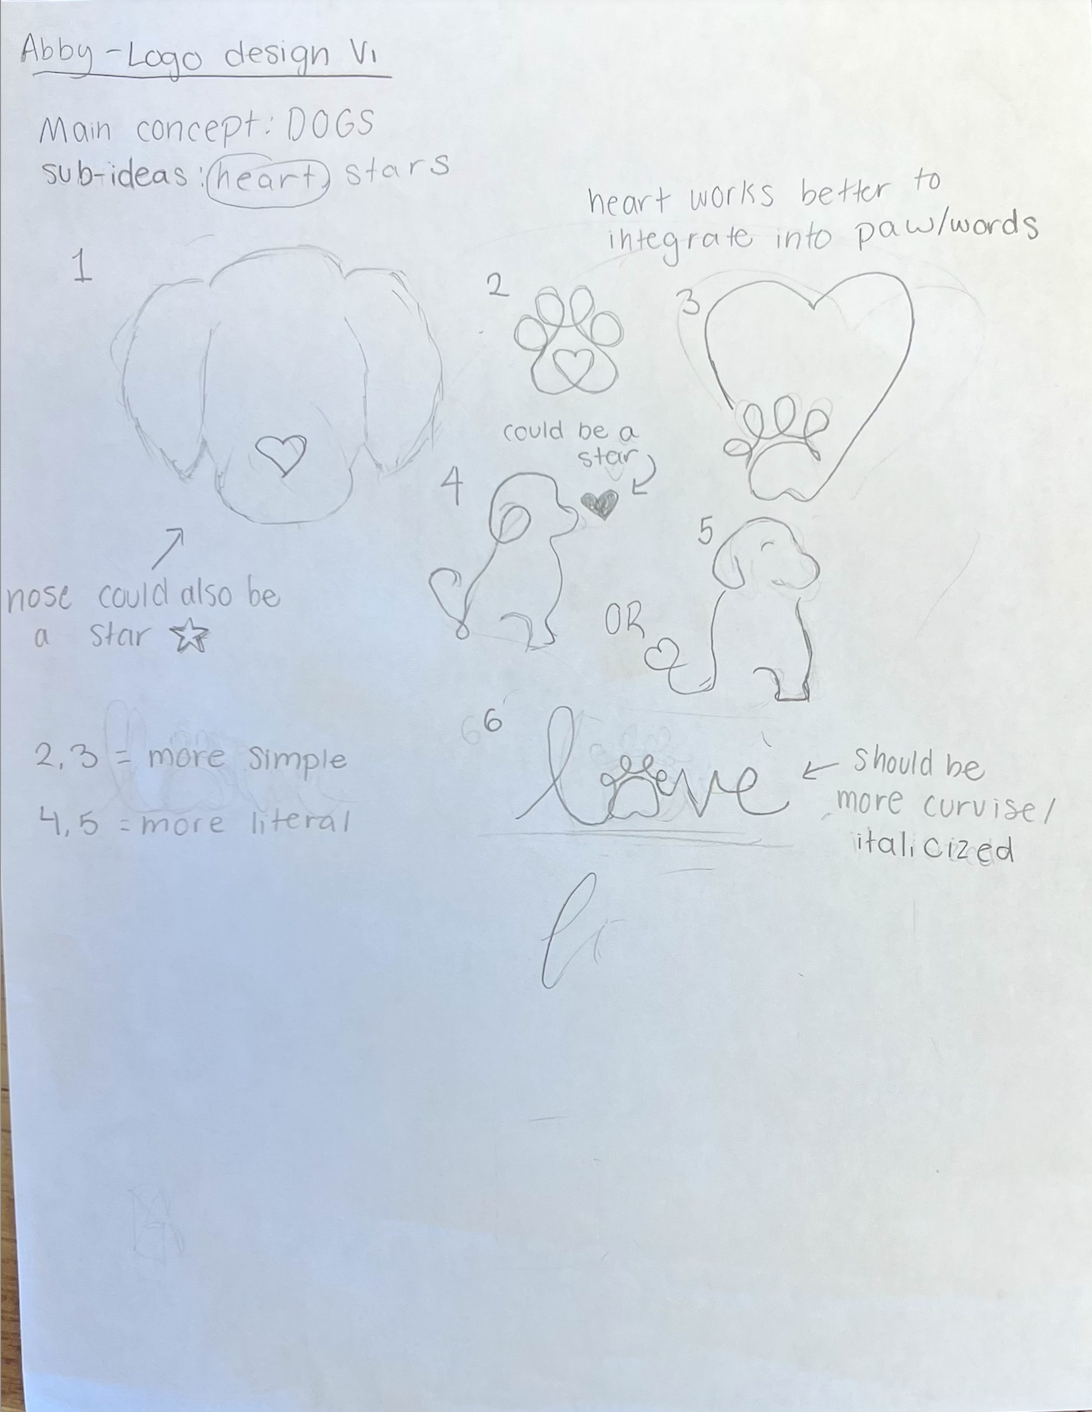 Abby - Logo design V1
Main concept: DOGS
sub-ideas: heart, stars
heart works better to
integrate into paw/words
1
2
3
could be a
star
4
5
nose could also be
a star
OR
6
love
2,3 = more simple
4,5 = more literal
should be
more curvise/
italicized